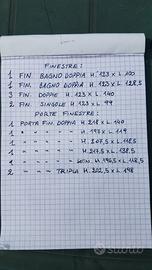 FINESTRE:
1 FIN. BAGNO DOPPIA H. 123 x L. 100
1 FIN. BAGNO DOPPIA H. 123 x L. 128,5
3 FIN. DOPPIE H. 123 x L. 140
2 FIN. SINGOLE H. 123 x L. 99
PORTE FINESTRE:
1 PORTA FIN. DOPPIA H. 218 x L. 140
1 " " " H. 198 x L. 119
1 " " " H. 207,5 x L. 118,5
1 " " " H. 217,5 x L. 138,5
1 " " " H. 196,5 x L. 118,5
2 " " TRIPLA H. 202,5 x L. 198
subito